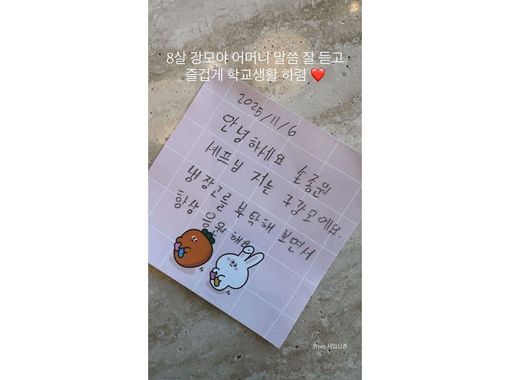 8살 강모야 어머니 말씀 잘 듣고
즐겁게 학교생활 하렴 ❤️
2025/11/6
안녕하세요 손종원
셰프님 저는 구강모에요.
냉장고를 부탁해 보면서
항상 응원해요
from 사업삼촌